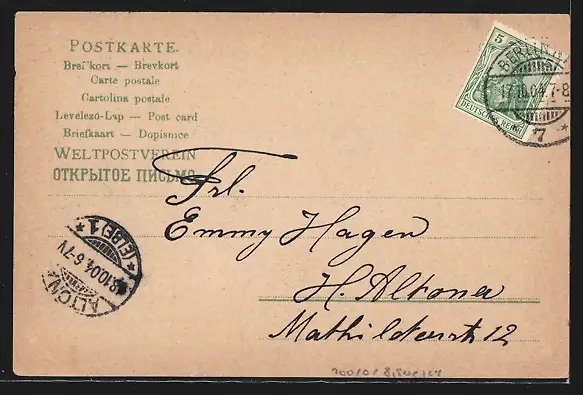 POSTKARTE.
Brefkort — Brevkort
Carte postale
Cartolina postale
Levelező-Lap — Post card
Briefkaart — Dopisnice
WELTPOSTVEREIN
ОТКРЫТОЕ ПИСЬМО
5
BERLIN
17.10.04.7-8
7
DEUTSCHES REICH
Frl.
Emmy Hagen
H. Altona
Mathildenstr 12
ALTONA
(ELBE) 1
10.04.6-7V